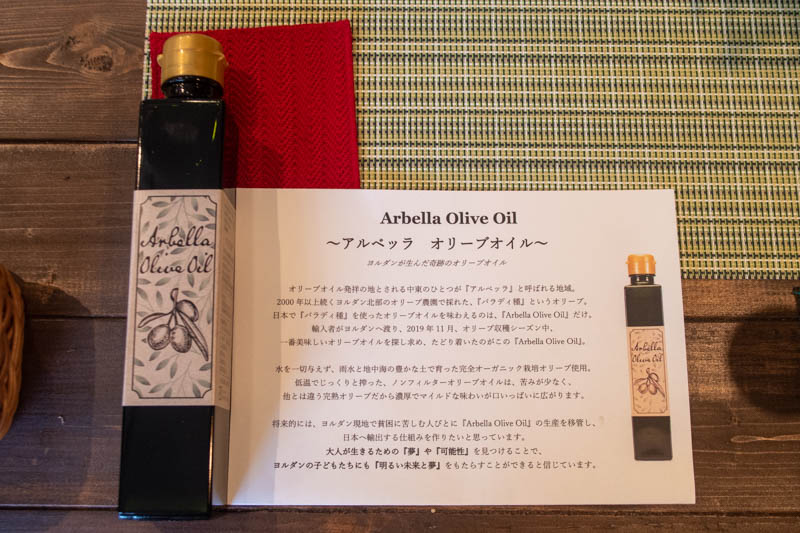 Arbella
Olive Oil
Arbella Olive Oil
～アルベッラ　オリーブオイル～
ヨルダンが生んだ奇跡のオリーブオイル
オリーブオイル発祥の地とされる中東のひとつが『アルベッラ』と呼ばれる地域。
2000年以上続くヨルダン北部のオリーブ農園で採れた、『バラディ種』というオリーブ。
日本で『バラディ種』を使ったオリーブオイルを味わえるのは、『Arbella Olive Oil』だけ。
輸入者がヨルダンへ渡り、2019年11月、オリーブ収穫シーズン中、
一番美味しいオリーブオイルを探し求め、たどり着いたのがこの『Arbella Olive Oil』。
水を一切与えず、雨水と地中海の豊かな土で育った完全オーガニック栽培オリーブ使用。
低温でじっくりと搾った、ノンフィルターオリーブオイルは、苦みが少なく、
他とは違う完熟オリーブだから濃厚でマイルドな味わいが口いっぱいに広がります。
将来的には、ヨルダン現地で貧困に苦しむ人びとに『Arbella Olive Oil』の生産を移管し、
日本へ輸出する仕組みを作りたいと思っています。
大人が生きるための『夢』や『可能性』を見つけることで、
ヨルダンの子どもたちにも『明るい未来と夢』をもたらすことができると信じています。
Arbella
Olive Oil